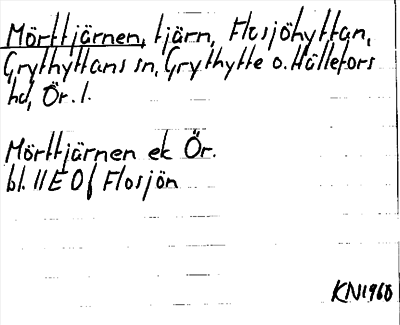 Mörttjärnen, tjärn, Flosjöhyttan,
Grythyttans sn, Grythytte o. Hällefors
hd, Ör. l.
Mörttjärnen ek Ör.
bl. 11 E 0f Flosjön
KN1968